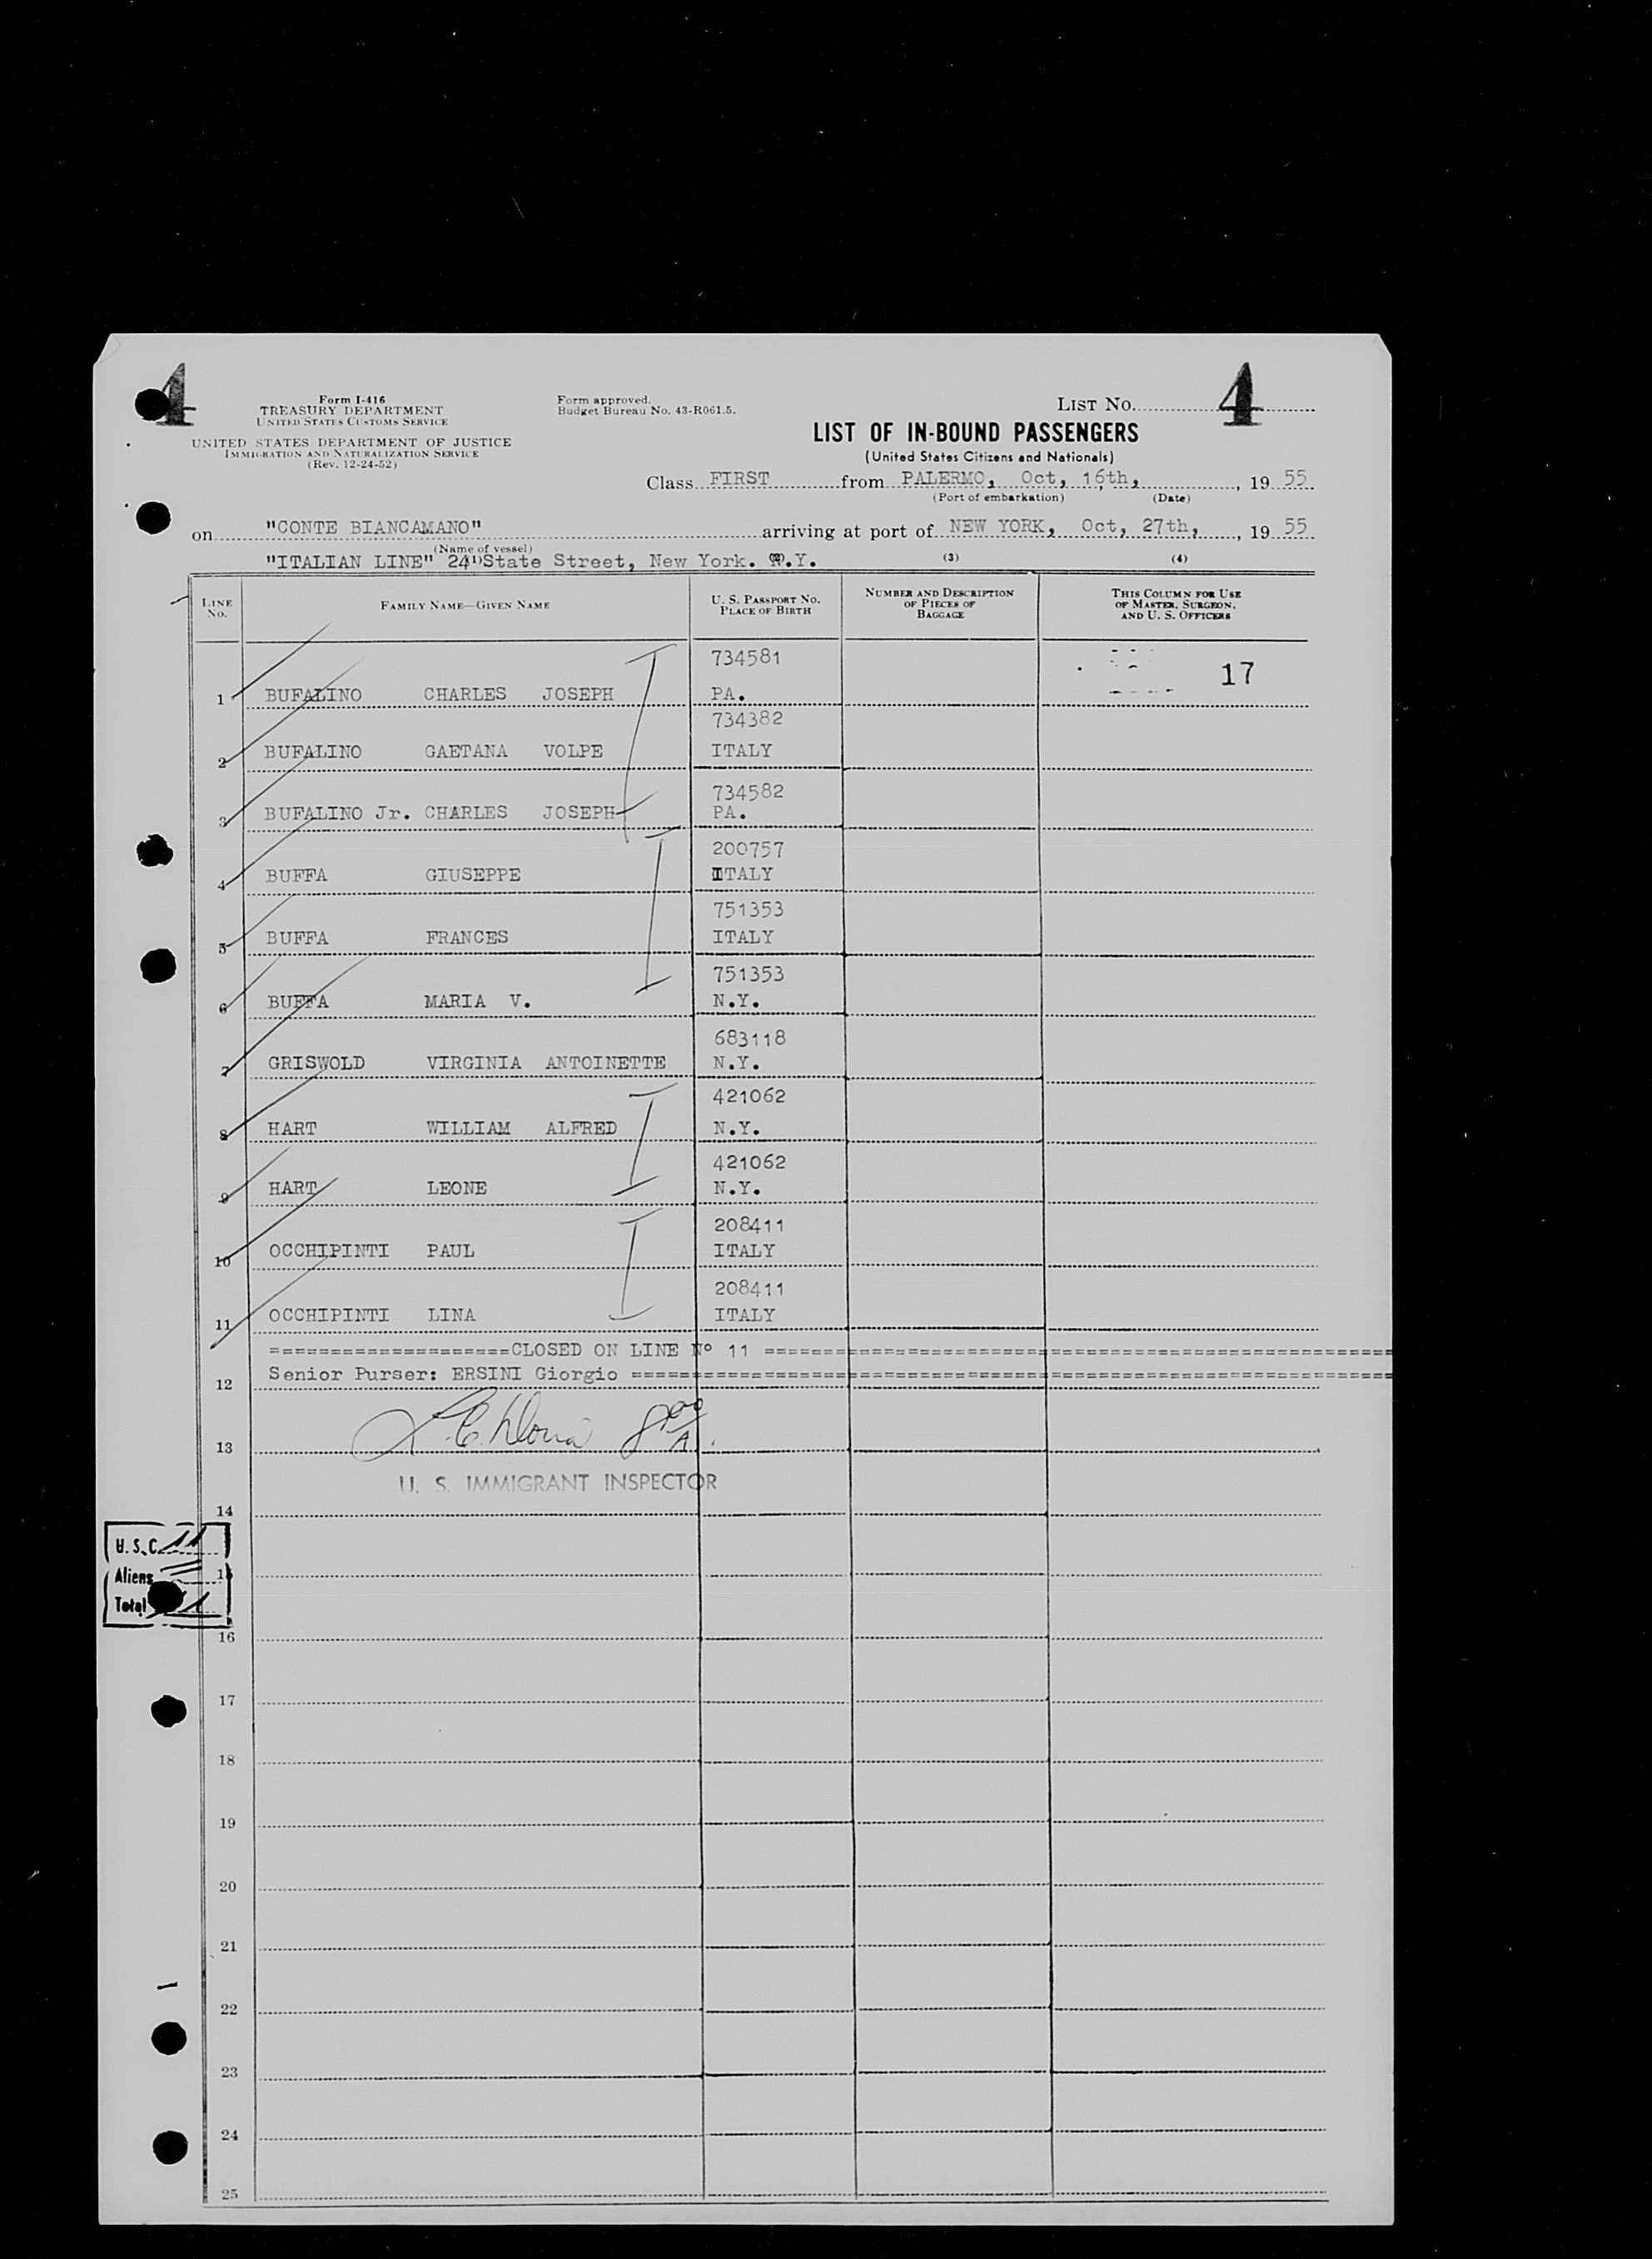 4
4
Form I-416
TREASURY DEPARTMENT
UNITED STATES CUSTOMS SERVICE
UNITED STATES DEPARTMENT OF JUSTICE
IMMIGRATION AND NATURALIZATION SERVICE
(Rev. 12-24-52)
Form approved.
Budget Bureau No. 43-R061.5.
LIST NO.
LIST OF IN-BOUND PASSENGERS
(United States Citizens and Nationals)
Class FIRST from PALERMO, Oct, 16th, , 19 55
(Port of embarkation) (Date)
on "CONTE BIANCAMANO" arriving at port of NEW YORK, Oct, 27th, , 19 55
(Name of vessel)
"ITALIAN LINE" 24 State Street, New York. N.Y. (3) (4)
LINE NO. FAMILY NAME—GIVEN NAME U. S. PASSPORT NO. PLACE OF BIRTH NUMBER AND DESCRIPTION OF PIECES OF BAGGAGE THIS COLUMN FOR USE OF MASTER, SURGEON, AND U. S. OFFICERS
734581 17
1 BUFALINO CHARLES JOSEPH PA.
734382
2 BUFALINO GAETANA VOLPE ITALY
734582
3 BUFALINO Jr. CHARLES JOSEPH PA.
200757
4 BUFFA GIUSEPPE ITALY
751353
5 BUFFA FRANCES ITALY
751353
6 BUFFA MARIA V. N.Y.
683118
7 GRISWOLD VIRGINIA ANTOINETTE N.Y.
421062
8 HART WILLIAM ALFRED N.Y.
421062
9 HART LEONE N.Y.
208411
10 OCCHIPINTI PAUL ITALY
208411
11 OCCHIPINTI LINA ITALY
====================CLOSED ON LINE Nº 11 ====================
12 Senior Purser: ERSINI Giorgio ====================
13
U. S. IMMIGRANT INSPECTOR
14
U.S.C. 11
Aliens
15
Total 11
16
17
18
19
20
21
22
23
24
25